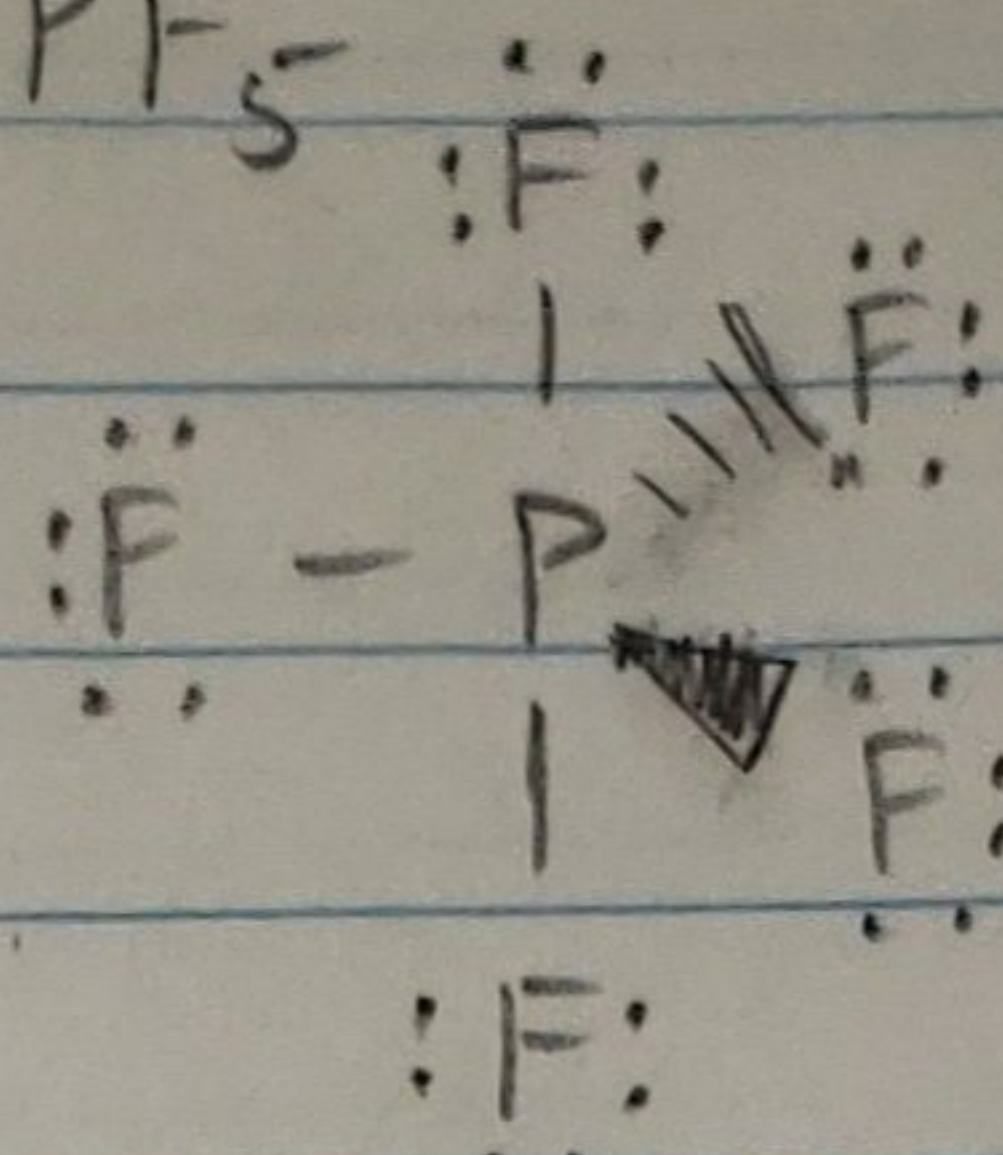 PF5
F
F
F - P
F
F